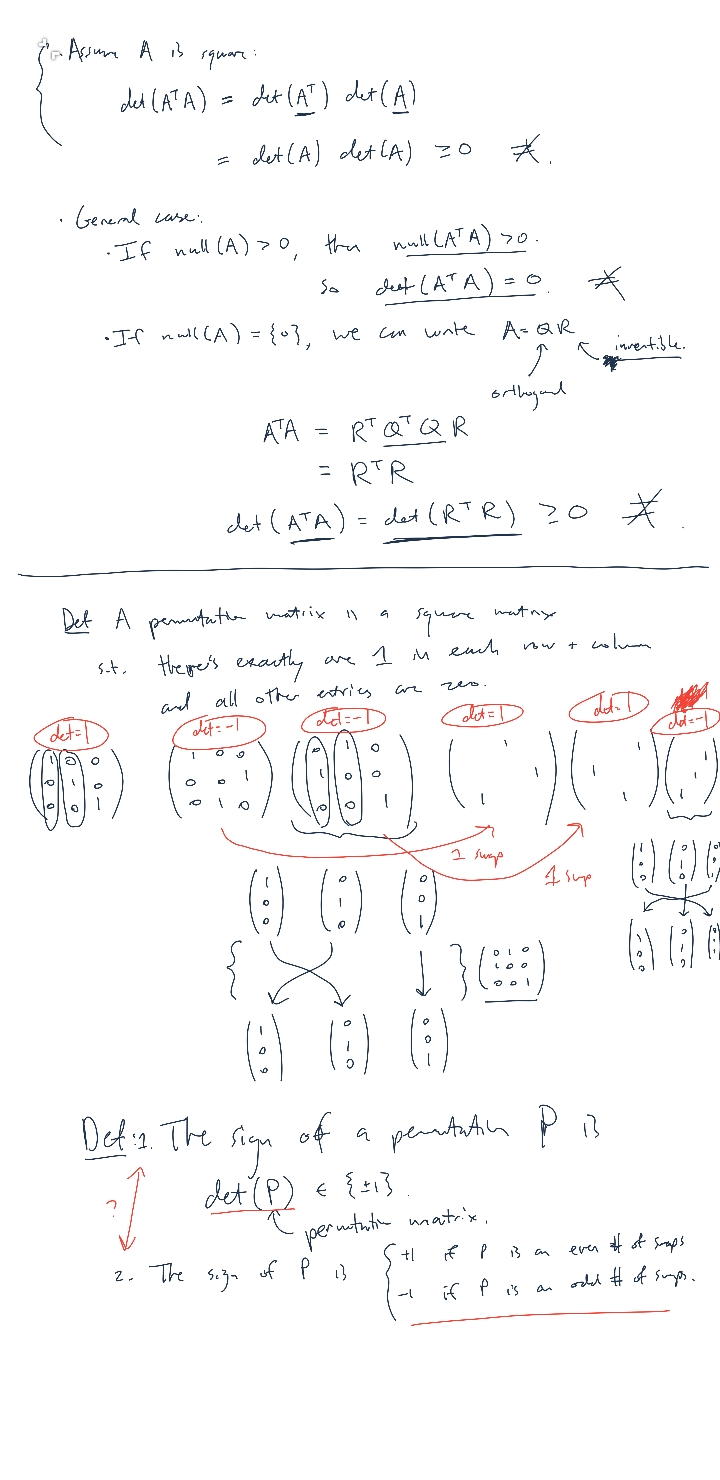 · Assume A is square:
det(AᵀA) = det(Aᵀ) det(A)
= det(A) det(A) ≥ 0
· General case:
· If null(A) > 0, then null(AᵀA) > 0.
So det(AᵀA) = 0.
· If null(A) = {0}, we can write A = QR
invertible.
orthogonal
AᵀA = RᵀQᵀQR
= RᵀR
det(AᵀA) = det(RᵀR) ≥ 0
Def A permutation matrix is a square matrix
s.t. there's exactly one 1 in each row + column
and all other entries are zero.
det=1 det=-1 det=-1 det=1 det=1 det=-1
1 0 0 1 0 0 0 1 0 1 1 1
0 1 0 0 0 1 1 0 0 1 1 1
0 0 1 0 1 0 0 0 1 1 1 1
1 swap
1 swap
1 0 0 1 0 0
0 1 0 0 1 0
0 0 1 0 0 1
0 1 0
1 0 0
0 0 1
1 0 0 1 0 0
0 1 0 0 1 0
0 0 1 0 0 1
Def: 1. The sign of a permutation P is
det(P) ∈ {±1}.
permutation matrix.
?
2. The sign of P is { +1 if P is an even # of swaps
-1 if P is an odd # of swaps.